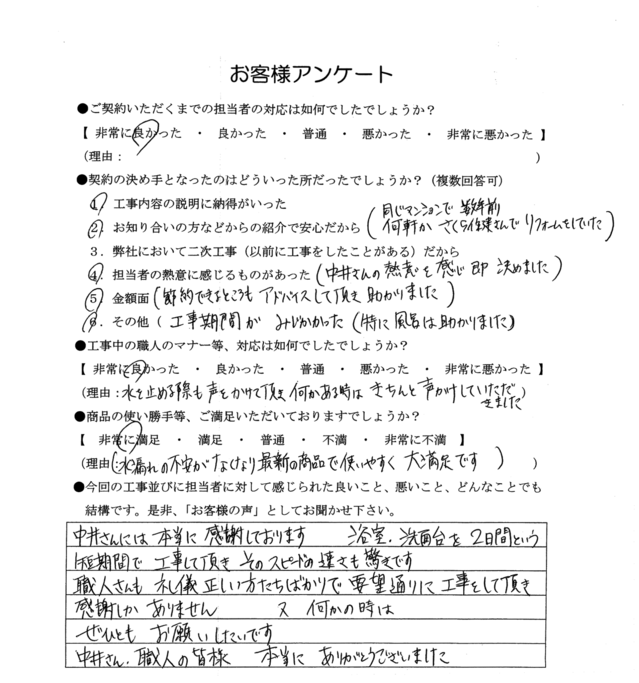 お客様アンケート
●ご契約いただくまでの担当者の対応は如何でしたでしょうか？
【 非常に良かった ・ 良かった ・ 普通 ・ 悪かった ・ 非常に悪かった 】
（理由： ）
●契約の決め手となったのはどういった所だったでしょうか？（複数回答可）
1．工事内容の説明に納得がいった
2．お知り合いの方などからの紹介で安心だから（同じマンションで 前
何軒か さくら住建さんで リフォームをしていた）
3．弊社において二次工事（以前に工事をしたことがある）だから
4．担当者の熱意に感じるものがあった（中井さんの熱意を感じ 即 決めました）
5．金額面（節約できるところも アドバイスして頂き 助かりました）
6．その他（ 工事期間が みじかかった（特に風呂は助かりました）
●工事中の職人のマナー等、対応は如何でしたでしょうか？
【 非常に良かった ・ 良かった ・ 普通 ・ 悪かった ・ 非常に悪かった 】
（理由：水を止める際も声をかけて頂き 何かある時は きちんと声がけしていただ
きました）
●商品の使い勝手等、ご満足いただいておりますでしょうか？
【 非常に満足 ・ 満足 ・ 普通 ・ 不満 ・ 非常に不満 】
（理由：水漏れの不安がなくなり最新の商品で使いやすく 大満足です ）
●今回の工事並びに担当者に対して感じられた良いこと、悪いこと、どんなことでも
結構です。是非、「お客様の声」としてお聞かせ下さい。
中井さんには 本当に 感謝しております 浴室・洗面台を 2日間という
短期間で 工事して頂き そのスピードの速さも驚きです
職人さんも 礼儀正しい方たちばかりで 要望通りに 工事をして頂き
感謝しか ありません 又 何かの時は
ぜひとも お願いしたいです
中井さん、職人の皆様 本当に ありがとうございました